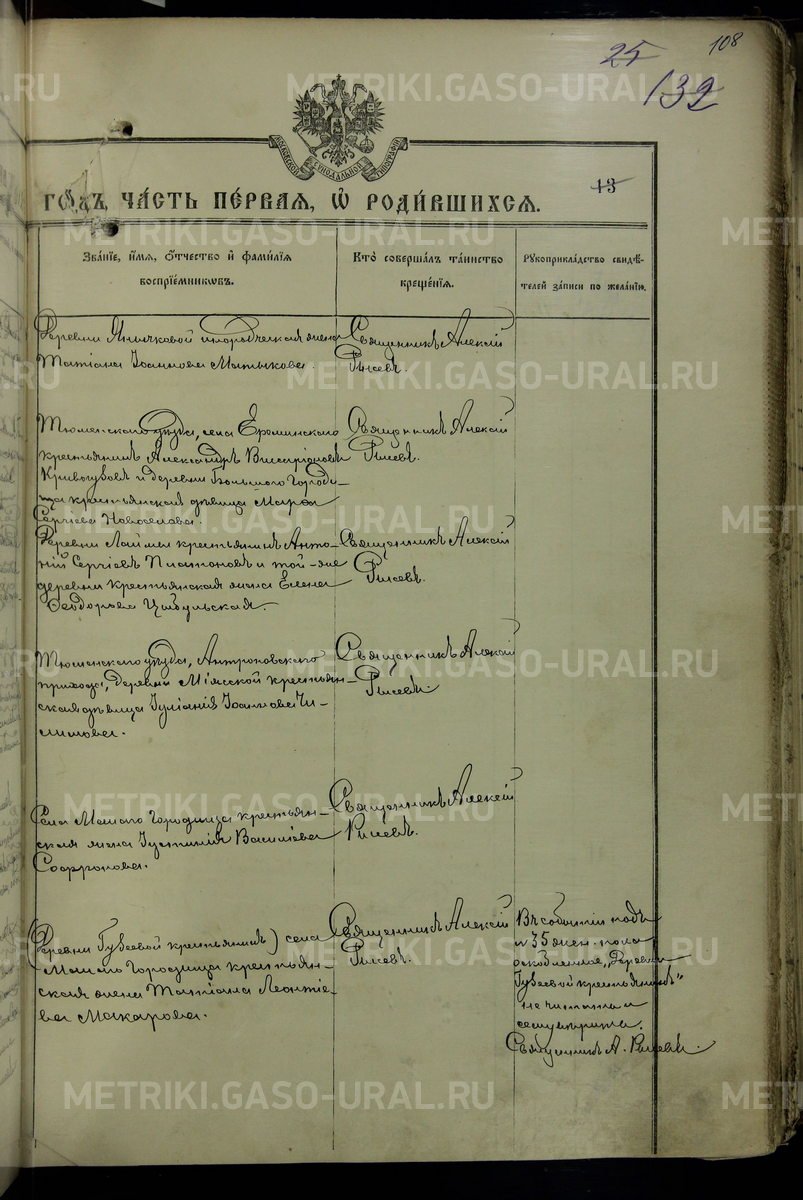 108
25
132
МОСКОВСКОЙ СѴНОДАЛЬНОЙ ТИПОГРАФІИ
13
ГОДЪ, ЧАСТЬ ПЕРВАЯ, Ѡ РОДИВШИХСЯ.
Званіе, имя, отчество и фамилія воспріемниковъ.
Кто совершалъ таинство крещенія.
Рукоприкладство свидѣтелей записи по желанію.
Деревни Янычковой инородческая жена
Татіана Іоаннова Матыкова.
Священникъ Алексій
Рычевъ.
Тюменскаго уѣзда, села Ереминскаго
крестьянинъ Александръ Виссаріоновъ
Кривозубовъ и деревни Большого Городи-
ща крестьянская дѣвица Марѳа
Сергіева Новоселова.
Священникъ Алексій
Рычевъ.
Деревни крестьянинъ Анто-
ній Сергіевъ Платоновъ и той-же
деревни крестьянская жена Елена
Ѳеодорова Цыбульская.
Священникъ Алексій
Рычевъ.
Тюменскаго уѣзда, Антроповскаго
прихода, деревни Міясской крестьян-
ская дѣвица Іуліанія Іоаннова Чи-
Священникъ Алексій
Рычевъ.
Села Малаго Городища крестьян-
ская жена Іустинія Василіева
Софронова.
Священникъ Алексій
Рычевъ.
(Деревни Губаевой крестьянинъ) села
Малаго Городища крестьян-
ская жена Татіана Леонтіе-
ва Макарова.
Священникъ Алексій
Рычевъ.
Въ событіи подъ
№ 35 жен. пола
оскобленное, "деревни
Губаевой крестьянинъ"
не читать
Священникъ А. Рычевъ
METRIKI.GASO-URAL.RU